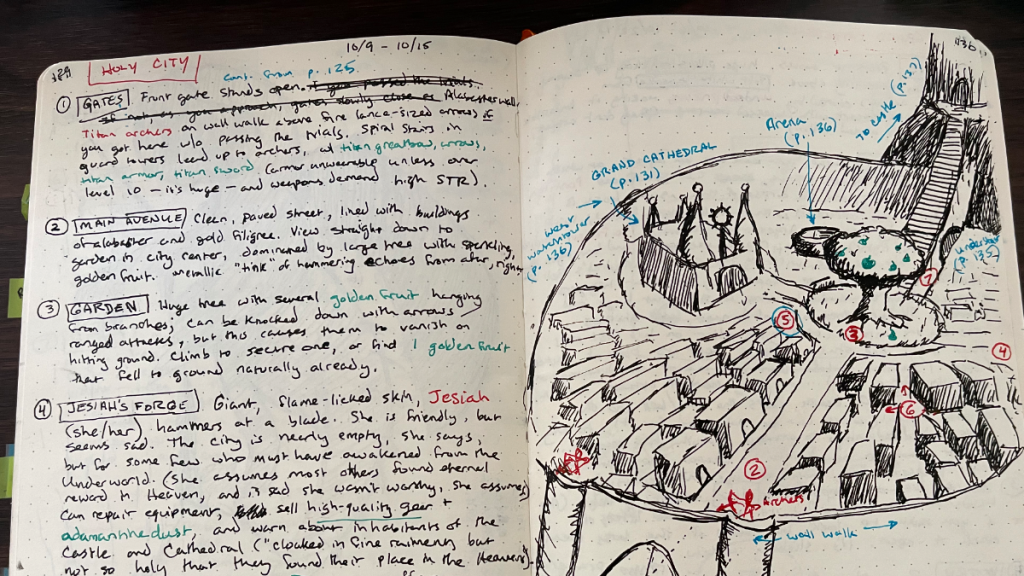 10/9 - 10/15
129
HOLY CITY
cont. from p. 125.
1 GATES Front gate stands open. If you passed the trials.
Alabaster wall.
Titan archers on wall walk above fire lance-sized arrows if
you got here w/o passing the trials. Spiral stairs in
guard towers lead up to archers, w/ titan greatbow, arrows,
titan armor, titan sword (armor unwearable unless over
level 10 - it's huge - and weapons demand high STR).
2 MAIN AVENUE Clean, paved street, lined with buildings
of alabaster and gold filigree. View straight down to
garden in city center, dominated by large tree with sparkling,
golden fruit. Metallic "tink" of hammering echoes from afar, right
3 GARDEN Huge tree with several golden fruit hanging
from branches; can be knocked down with arrows/
ranged attacks, but this causes them to vanish on
hitting ground. Climb to secure one, or find 1 golden fruit
that fell to ground naturally already.
4 JESIAH'S FORGE Giant, flame-licked skin, Jesiah
(she/her) hammers at a blade. She is friendly but
seems sad. The city is nearly empty, she says,
but for some few who must have awakened from the
Underworld. (She assumes most others found eternal
reward in Heaven, and is sad she wasn't worthy, she assumes)
Can repair equipment, sell high-quality gear +
adamantine dust, and warn about inhabitants of the
Castle and Cathedral ("cloaked in fine raiment, but
not so holy that they found their place in the Heavens).
130
TO castle (p. 137)
Arena
(p. 136)
GRAND CATHEDRAL
(p. 131)
West
(p. 136)
(p. 135)
7
5
3
4
6
2
archers
wall walk